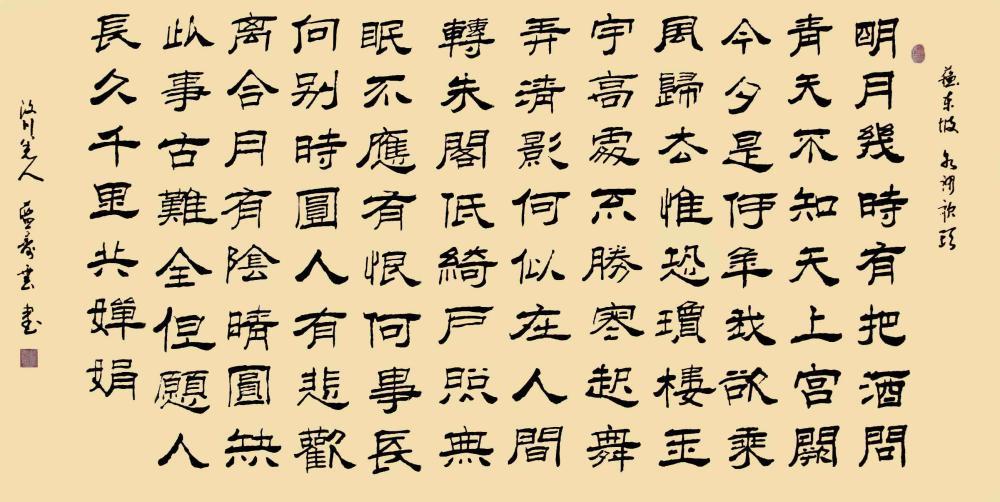 蘇東坡 水調歌頭
明月幾時有把酒問
青天不知天上宮闕
今夕是何年我欲乘
風歸去惟恐瓊樓玉
宇高處不勝寒起舞
弄清影何似在人間
轉朱閣低綺戶照無
眠不應有恨何事長
向别時圓人有悲歡
离合月有陰晴圓缺
此事古難全但願人
長久千里共嬋娟
汶川 人 書